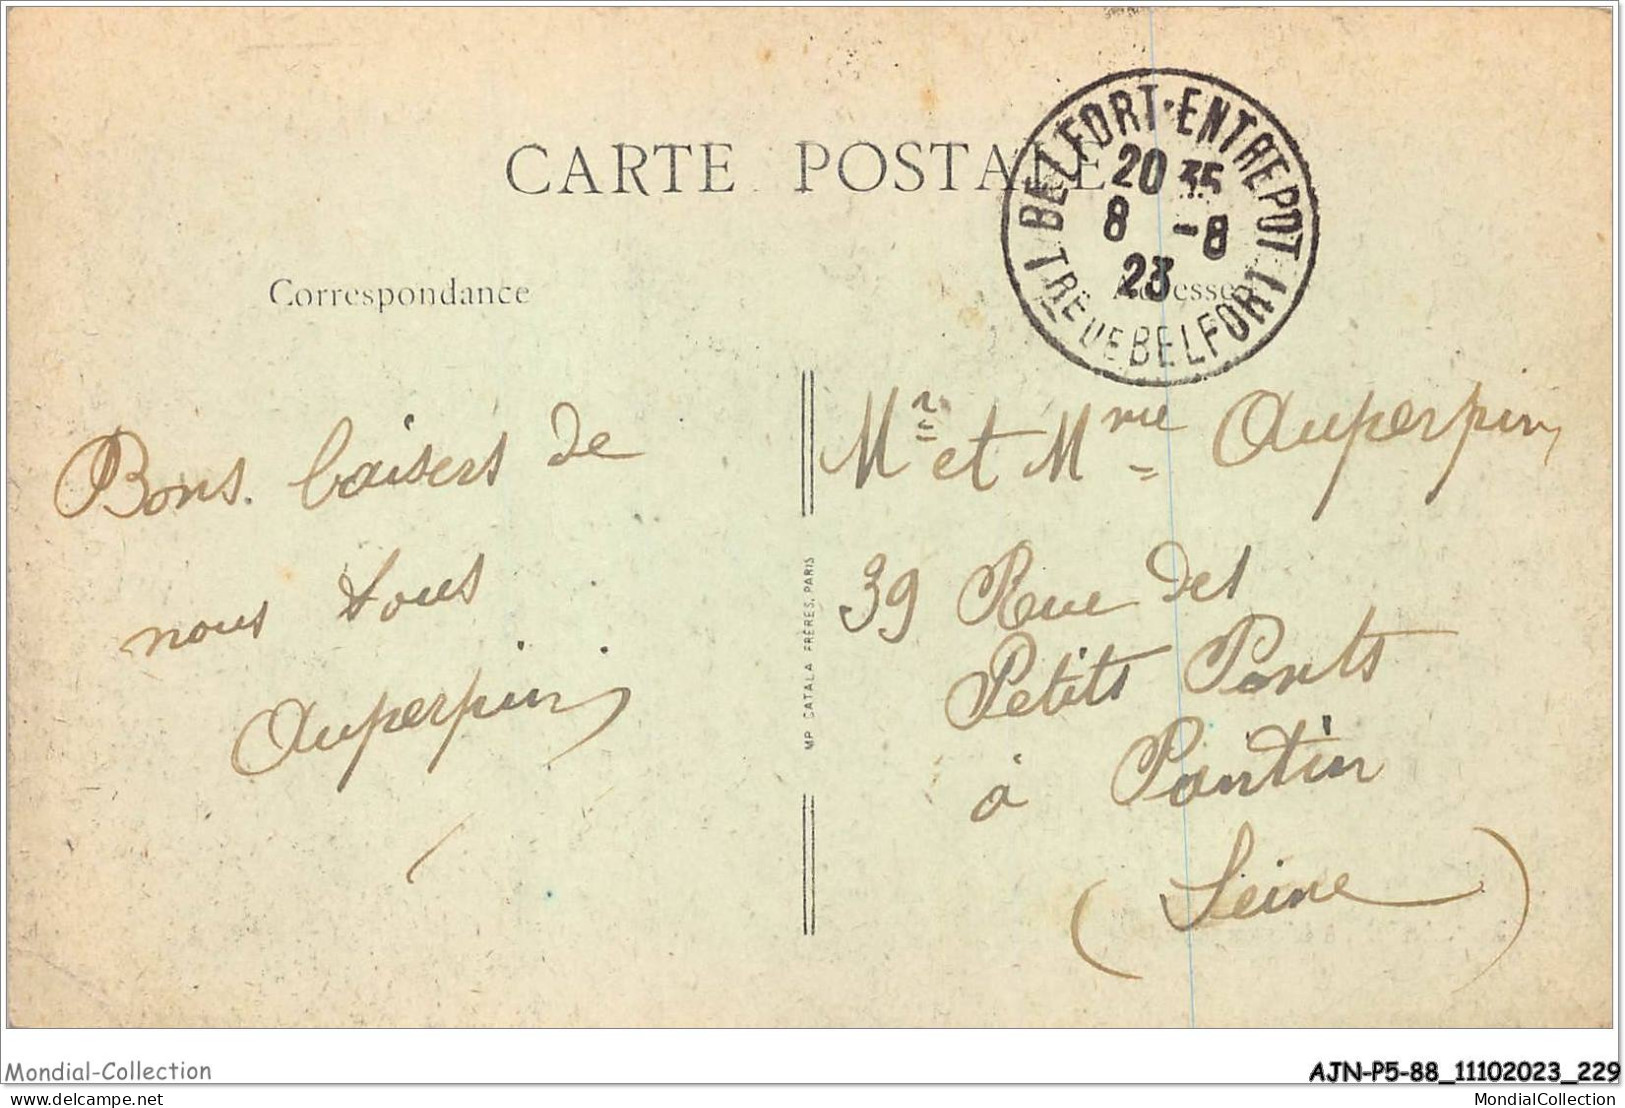 CARTE POSTALE
BELFORT·ENTREPOT
20 35
8 -8
23
TRE DE BELFORT
Correspondance
Adresse
Bons baisers de
nous tous
Auperpin
Mr et Mme Auperpin
39 Rue des
Petits Ponts
à Pantin
(Seine)
MP. CATALA FRÈRES, PARIS
Mondial-Collection
AJN-P5-88_11102023_229
delcampe.net
MondialCollection